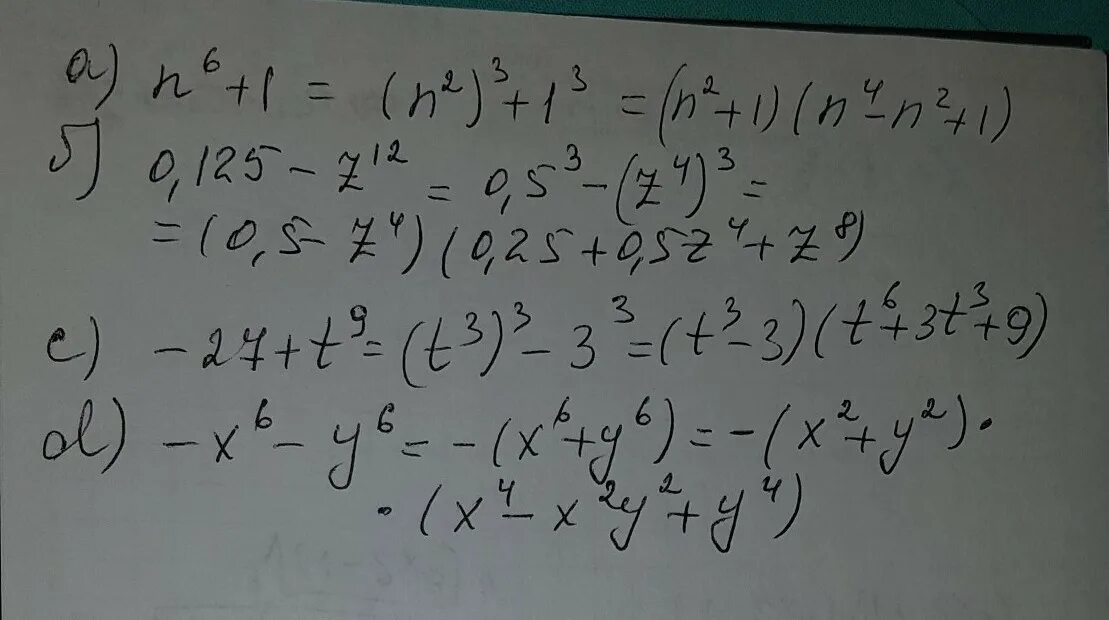 а) n⁶+1 = (n²)³+1³ = (n²+1)(n⁴-n²+1)
б) 0,125-z¹² = 0,5³-(z⁴)³ =
= (0,5-z⁴)(0,25+0,5z⁴+z⁸)
c) -27+t⁹ = (t³)³-3³ = (t³-3)(t⁶+3t³+9)
d) -x⁶-y⁶ = -(x⁶+y⁶) = -(x²+y²)·
·(x⁴-x²y²+y⁴)